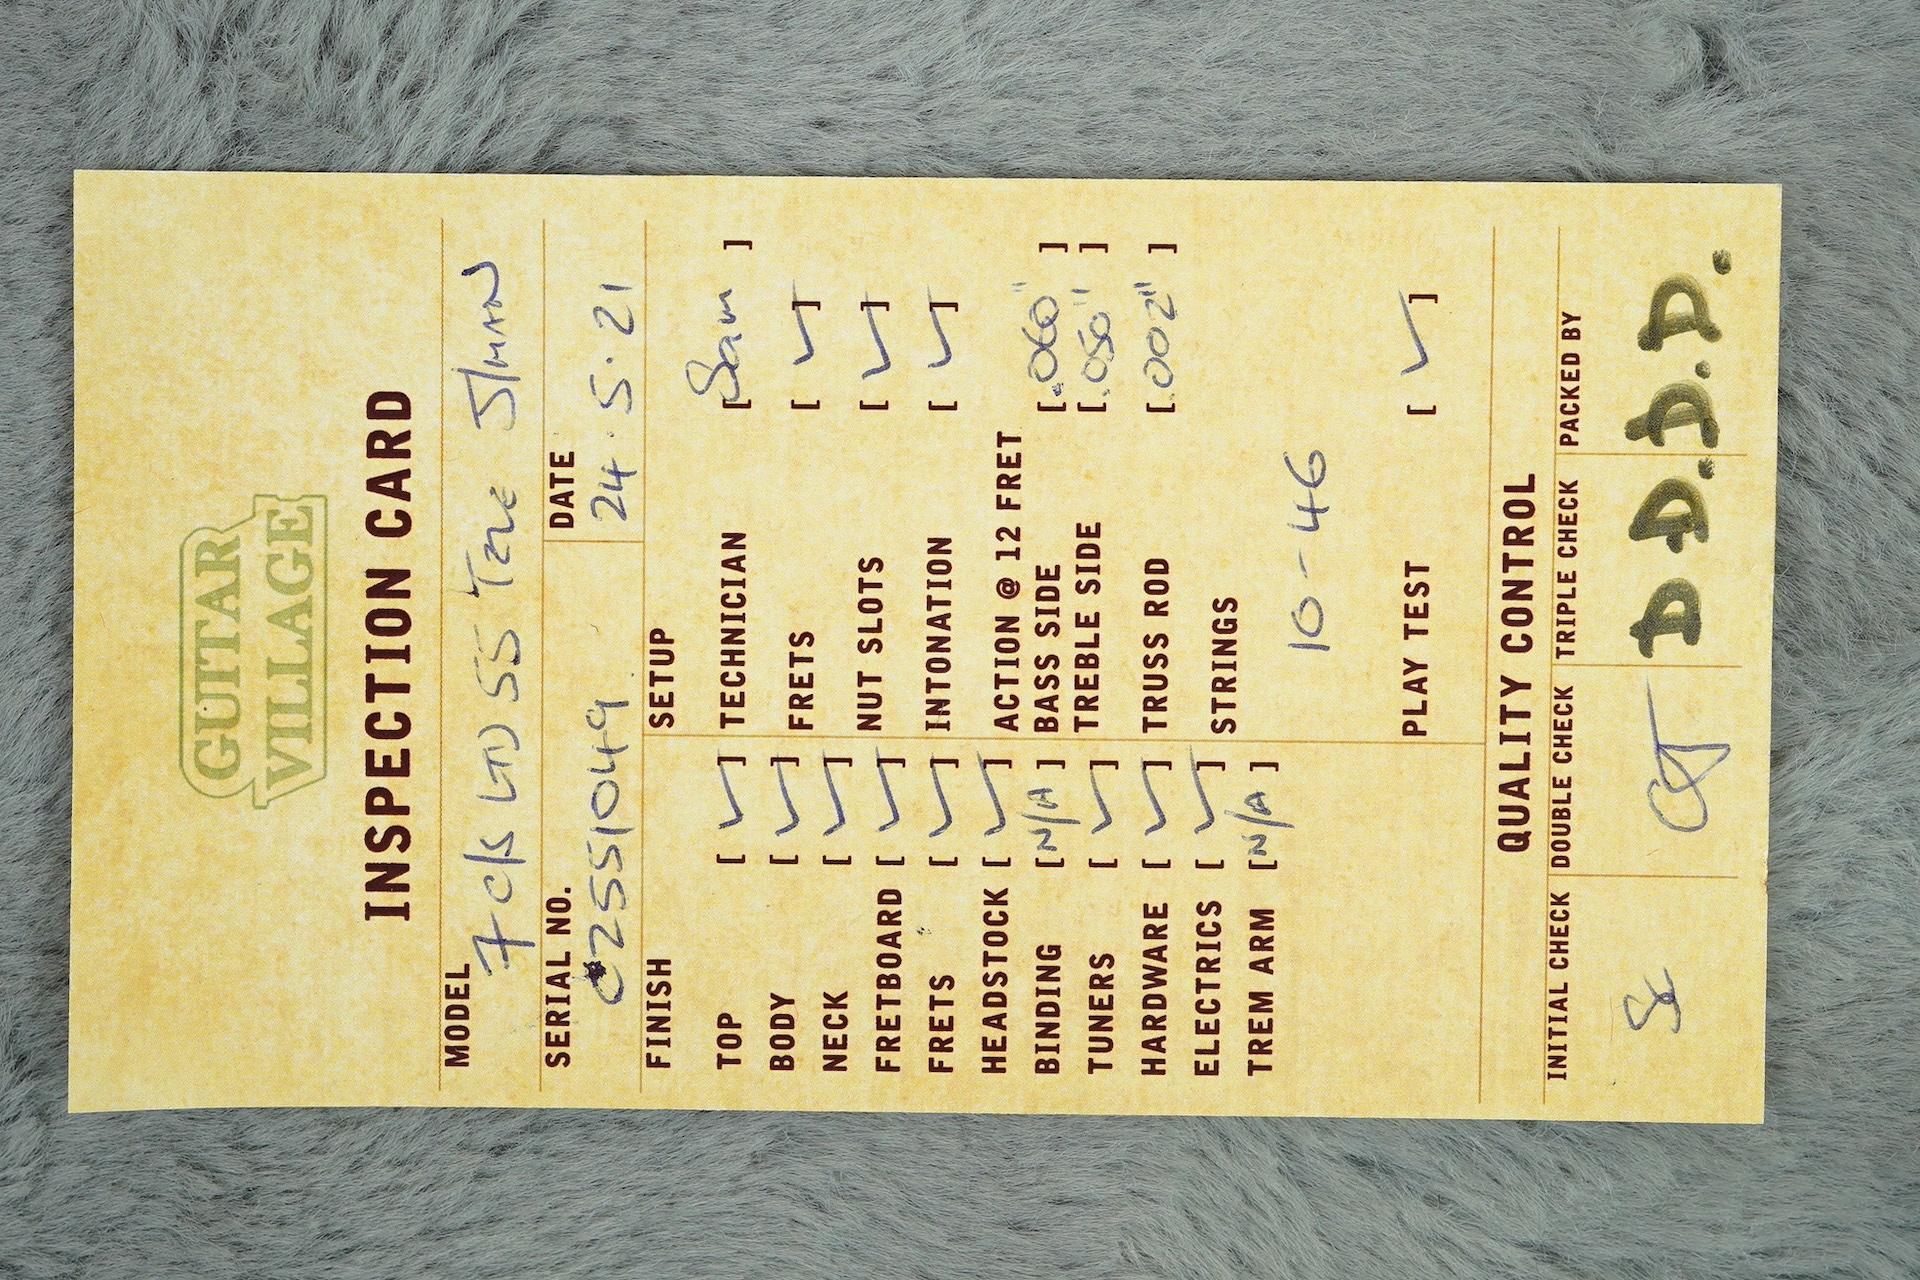 GUITAR
VILLAGE
INSPECTION CARD
MODEL
7 C/S LTD 55 Tele J/MAN
SERIAL NO. DATE
CZ551049 24.5.21
FINISH SETUP
TOP [ ✓ ] TECHNICIAN [ Sam ]
BODY [ ✓ ] FRETS [ ✓ ]
NECK [ ✓ ]
FRETBOARD [ ✓ ] NUT SLOTS [ ✓ ]
FRETS [ ✓ ] INTONATION [ ✓ ]
HEADSTOCK [ ✓ ] ACTION @ 12 FRET
BINDING [ N/A ] BASS SIDE [ .060" ]
TUNERS [ ✓ ] TREBLE SIDE [ .050" ]
HARDWARE [ ✓ ] TRUSS ROD [ .002" ]
ELECTRICS [ ✓ ] STRINGS
TREM ARM [ N/A ]
10-46
PLAY TEST [ ✓ ]
QUALITY CONTROL
INITIAL CHECK DOUBLE CHECK TRIPLE CHECK PACKED BY
D D.D.D.